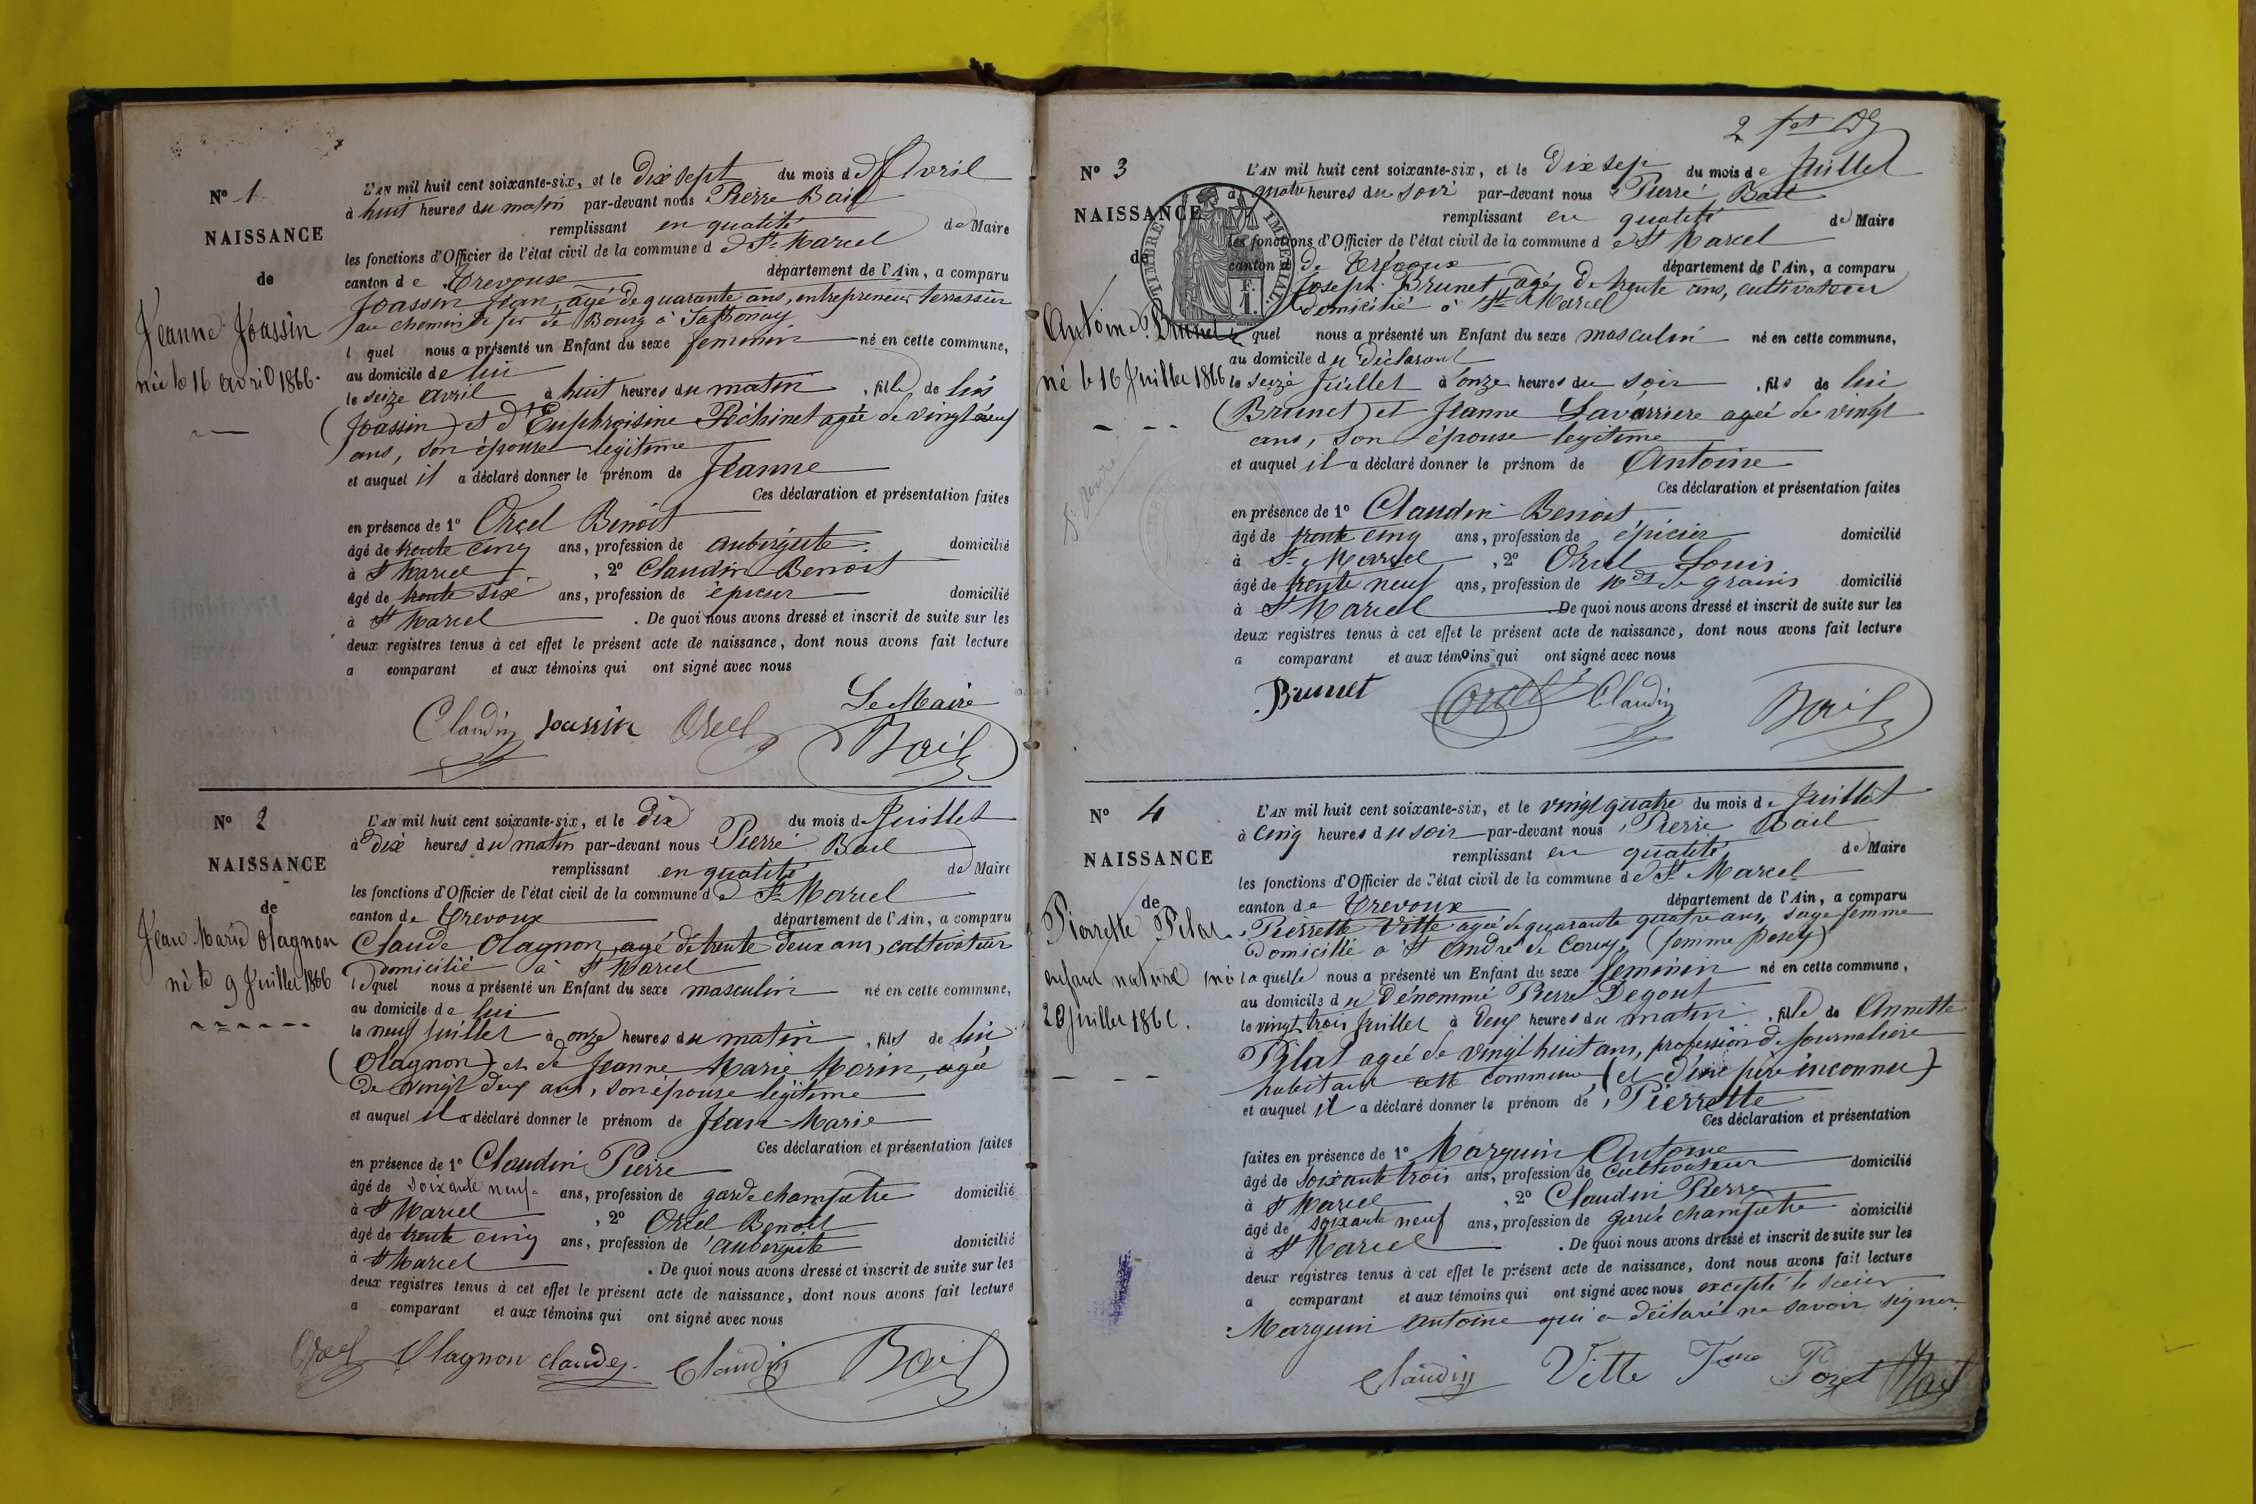 N° 1
NAISSANCE
de
Jeanne Joassin
née le 16 avril 1866.
L'AN mil huit cent soixante-six, et le dix sept du mois d'Avril
à huit heures du matin par-devant nous Pierre Bail
remplissant en qualité de Maire
les fonctions d'Officier de l'état civil de la commune de St Marcel
canton de Trevoux département de l'Ain, a comparu
Joassin Jean, agé de quarante ans, entrepreneur terrassier
au chemin de fer de Bourg à Sathonay
l quel nous a présenté un Enfant du sexe feminin né en cette commune,
au domicile de lui
le seize avril à huit heures du matin, fille de lui
(Joassin) et d'Euphroisine Péchinet agée de vingt neuf
ans, son épouse legitime
et auquel il a déclaré donner le prénom de Jeanne
Ces déclaration et présentation faites
en présence de 1° Orcel Benoit
âgé de trente cinq ans, profession de aubergiste domicilié
à St Marcel, 2° Claudin Benoit
âgé de trente six ans, profession de épicier domicilié
à St Marcel. De quoi nous avons dressé et inscrit de suite sur les
deux registres tenus à cet effet le présent acte de naissance, dont nous avons fait lecture
a comparant et aux témoins qui ont signé avec nous
Le Maire
Claudin Joassin Orcel Bail
N° 2
NAISSANCE
de
Jean Marie Olagnon
né le 9 Juillet 1866
L'AN mil huit cent soixante-six, et le dix du mois de Juillet
à dix heures du matin par-devant nous Pierre Bail
remplissant en qualité de Maire
les fonctions d'Officier de l'état civil de la commune de St Marcel
canton de Trevoux département de l'Ain, a comparu
Claude Olagnon, agé de trente deux ans, cultivateur
domicilié à St Marcel
lequel nous a présenté un Enfant du sexe masculin né en cette commune,
au domicile de lui
le neuf juillet à onze heures du matin, fils de lui
(Olagnon) et de Jeanne Marie Morin, agée
de vingt deux ans, son épouse legitime
et auquel il a déclaré donner le prénom de Jean-Marie
Ces déclaration et présentation faites
en présence de 1° Claudin Pierre
âgé de soixante neuf ans, profession de garde champêtre domicilié
à St Marcel, 2° Orcel Benoit
âgé de trente cinq ans, profession de aubergiste domicilié
à St Marcel. De quoi nous avons dressé et inscrit de suite sur les
deux registres tenus à cet effet le présent acte de naissance, dont nous avons fait lecture
a comparant et aux témoins qui ont signé avec nous
Orcel Olagnon Claude Claudin Bail
2
N° 3
NAISSANCE
de
Antoine Brunet
né le 16 Juillet 1866
TIMBRE IMPERIAL
F. 1.
L'AN mil huit cent soixante-six, et le dix sep du mois de Juillet
à quatre heures du soir par-devant nous Pierre Bail
remplissant en qualité de Maire
les fonctions d'Officier de l'état civil de la commune de St Marcel
canton de de Trévoux département de l'Ain, a comparu
Joseph Brunet, agé de trente ans, cultivateur
domicilié à St Marcel
l quel nous a présenté un Enfant du sexe masculin né en cette commune,
au domicile du déclarant
le seize Juillet à onze heures du soir, fils de lui
(Brunet) et Jeanne Lavarriere agée de vingt
ans, son épouse legitime
et auquel il a déclaré donner le prénom de Antoine
Ces déclaration et présentation faites
en présence de 1° Claudin Benoit
âgé de trente cinq ans, profession de épicier domicilié
à St Marcel, 2° Orcel Louis
âgé de trente neuf ans, profession de Md de grains domicilié
à St Marcel. De quoi nous avons dressé et inscrit de suite sur les
deux registres tenus à cet effet le présent acte de naissance, dont nous avons fait lecture
a comparant et aux témoins qui ont signé avec nous
Brunet Orcel Claudin Bail
N° 4
NAISSANCE
de
Pierrette Pilat
enfant naturel né
L'AN mil huit cent soixante-six, et le vingt quatre du mois de Juillet
à cinq heures du soir par-devant nous Pierre Bail
remplissant en qualité de Maire
les fonctions d'Officier de l'état civil de la commune de St Marcel
canton de Trevoux département de l'Ain, a comparu
Pierrette Vitte agée de quarante quatre ans, sage femme
domiciliée à St André de Corcy (femme Poset)
laquelle nous a présenté un Enfant du sexe feminin né en cette commune,
au domicile du dénommé Pierre Degout
le vingt trois Juillet à deux heures du matin, fille de Annette
Pilat agée de vingt huit ans, profession de journaliere
habitant cette commune (et d'un père inconnu)
et auquel il a déclaré donner le prénom de Pierrette
Ces déclaration et présentation
faites en présence de 1° Marguin Antoine
âgé de soixante trois ans, profession de cultivateur domicilié
à St Marcel, 2° Claudin Pierre
âgé de soixante neuf ans, profession de garde champêtre domicilié
à St Marcel. De quoi nous avons dressé et inscrit de suite sur les
deux registres tenus à cet effet le présent acte de naissance, dont nous avons fait lecture
a comparant et aux témoins qui ont signé avec nous excepté le sieur
Marguin Antoine qui a déclaré ne savoir signer.
Claudin Vitte Fme Poset Bail